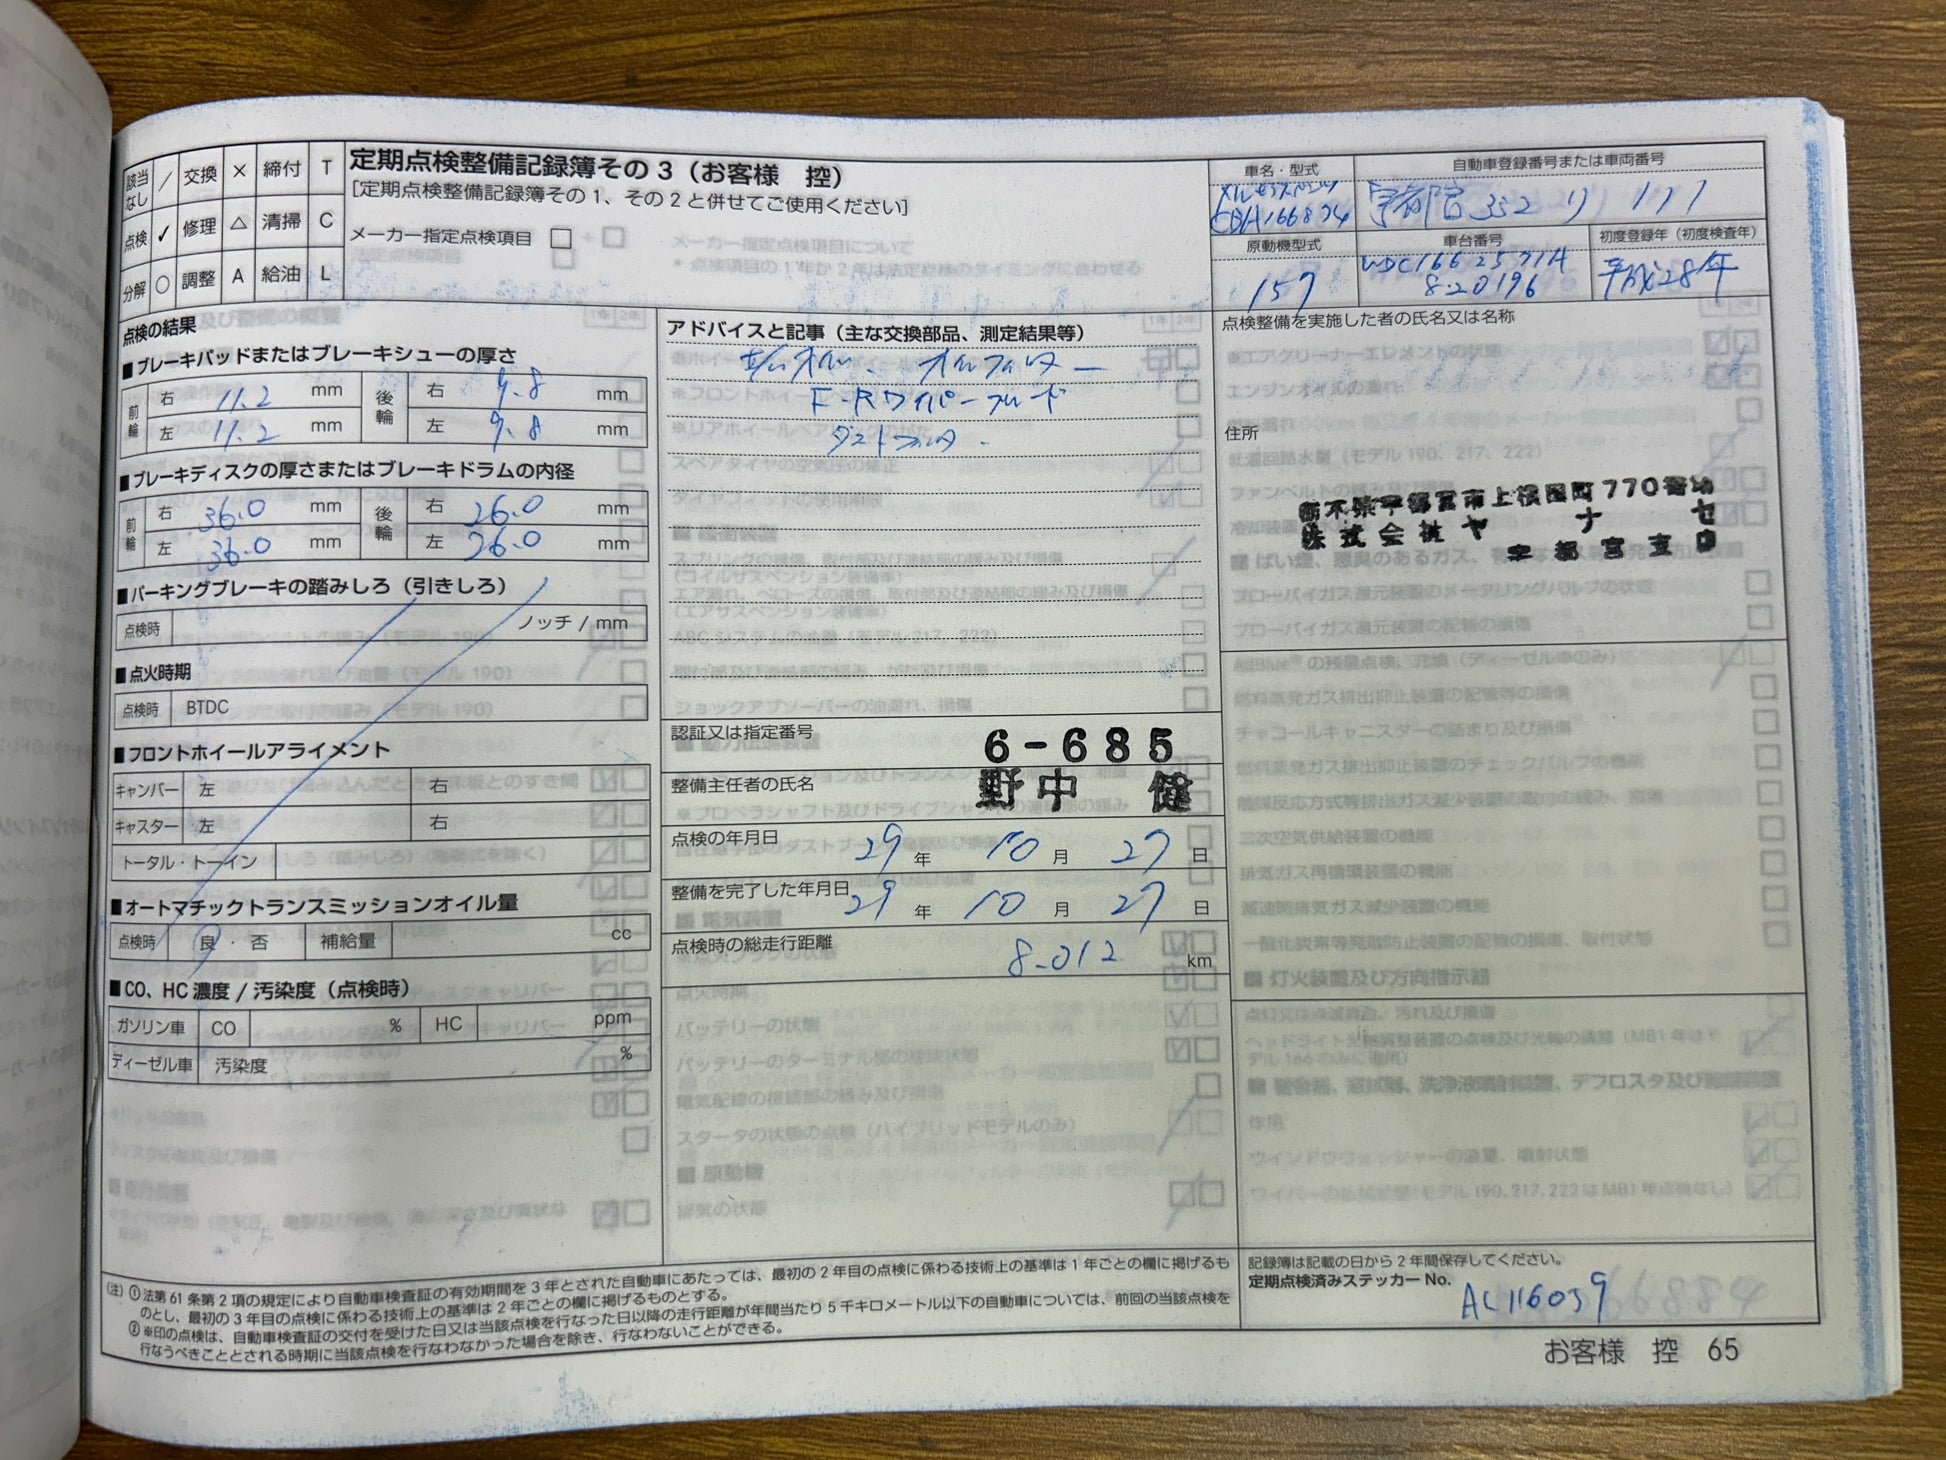 該当なし / 交換 × 締付 T
点検 ✓ 修理 △ 清掃 C
分解 ○ 調整 A 給油 L
定期点検整備記録簿その3（お客様 控）
[定期点検整備記録簿その1、その2と併せてご使用ください]
メーカー指定点検項目 □
車名・型式
CBA166874
自動車登録番号または車両番号
宇都宮 352 り 117
原動機型式
157
車台番号
WDC1662571A
820196
初度登録年（初度検査年）
平成28年
点検の結果
■ブレーキパッドまたはブレーキシューの厚さ
前輪 右 11.2 mm 後輪 右 9.8 mm
左 11.2 mm 左 9.8 mm
■ブレーキディスクの厚さまたはブレーキドラムの内径
前輪 右 36.0 mm 後輪 右 26.0 mm
左 36.0 mm 左 26.0 mm
■パーキングブレーキの踏みしろ（引きしろ）
点検時 ノッチ / mm
■点火時期
点検時 BTDC
■フロントホイールアライメント
キャンバー 左 右
キャスター 左 右
トータル・トーイン
■オートマチックトランスミッションオイル量
点検時 良・否 補給量 cc
■CO、HC濃度 / 汚染度（点検時）
ガソリン車 CO % HC ppm
ディーゼル車 汚染度 %
アドバイスと記事（主な交換部品、測定結果等）
オイルフィルター
F-Rワイパーブレード
ダストフィルタ
認証又は指定番号
6-685
整備主任者の氏名
野中 健
点検の年月日
29 年 10 月 27 日
整備を完了した年月日
29 年 10 月 27 日
点検時の総走行距離
8.012 km
点検整備を実施した者の氏名又は名称
住所
栃木県宇都宮市上横田町770番地
株式会社ヤナセ
宇都宮支店
(注) ①法第61条第2項の規定により自動車検査証の有効期間を3年とされた自動車にあたっては、最初の2年目の点検に係わる技術上の基準は1年ごとの欄に掲げるも
のとし、最初の3年目の点検に係わる技術上の基準は2年ごとの欄に掲げるものとする。
②※印の点検は、自動車検査証の交付を受けた日又は当該点検を行なった日以降の走行距離が年間当たり5千キロメートル以下の自動車については、前回の当該点検を
行なうべきこととされる時期に当該点検を行なわなかった場合を除き、行なわないことができる。
記録簿は記載の日から2年間保存してください。
定期点検済みステッカーNo.
AC116039
お客様 控 65